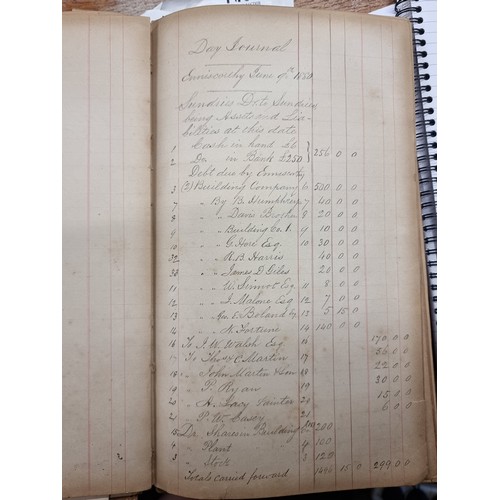 Day Journal
Enniscorthy June 9th 1880
Sundries Dr to Sundries
being Assets and Lia-
bilities at this date
1 Cash in hand £6
2 Do in Bank £250 } 256 0 0
Debt due by Enniscorthy
3 (3) Building Company 6 500 0 0
7 " By B. Humphreys 7 40 0 0
8 " " Davis Brothers 8 20 0 0
9 " " Building Co. 9 10 0 0
10 " " G. Hore Esq. 10 30 0 0
32 " " R. B. Harris 40 0 0
30 " " James D Giles 20 0 0
11 " " W. Sinnot Esq 11 8 0 0
12 " " J. Malone Esq 12 7 0 0
13 " " Rev. E. Boland 13 5 15 0
14 " " N. Fortune 14 140 0 0
16 To J. W. Walsh Esq 16 170 0 0
17 To Thos C Martin 17 56 0 0
18 " John Martin & Son 18 22 0 0
19 " P. Ryan 19 30 0 0
20 " H. Lacy Painter 20 15 0 0
21 " P. W. Casey 21 6 0 0
Dr Building 200
4 " Plant 4 100
3 " Stock 3 120
Totals carried forward 1496 15 0 299 0 0